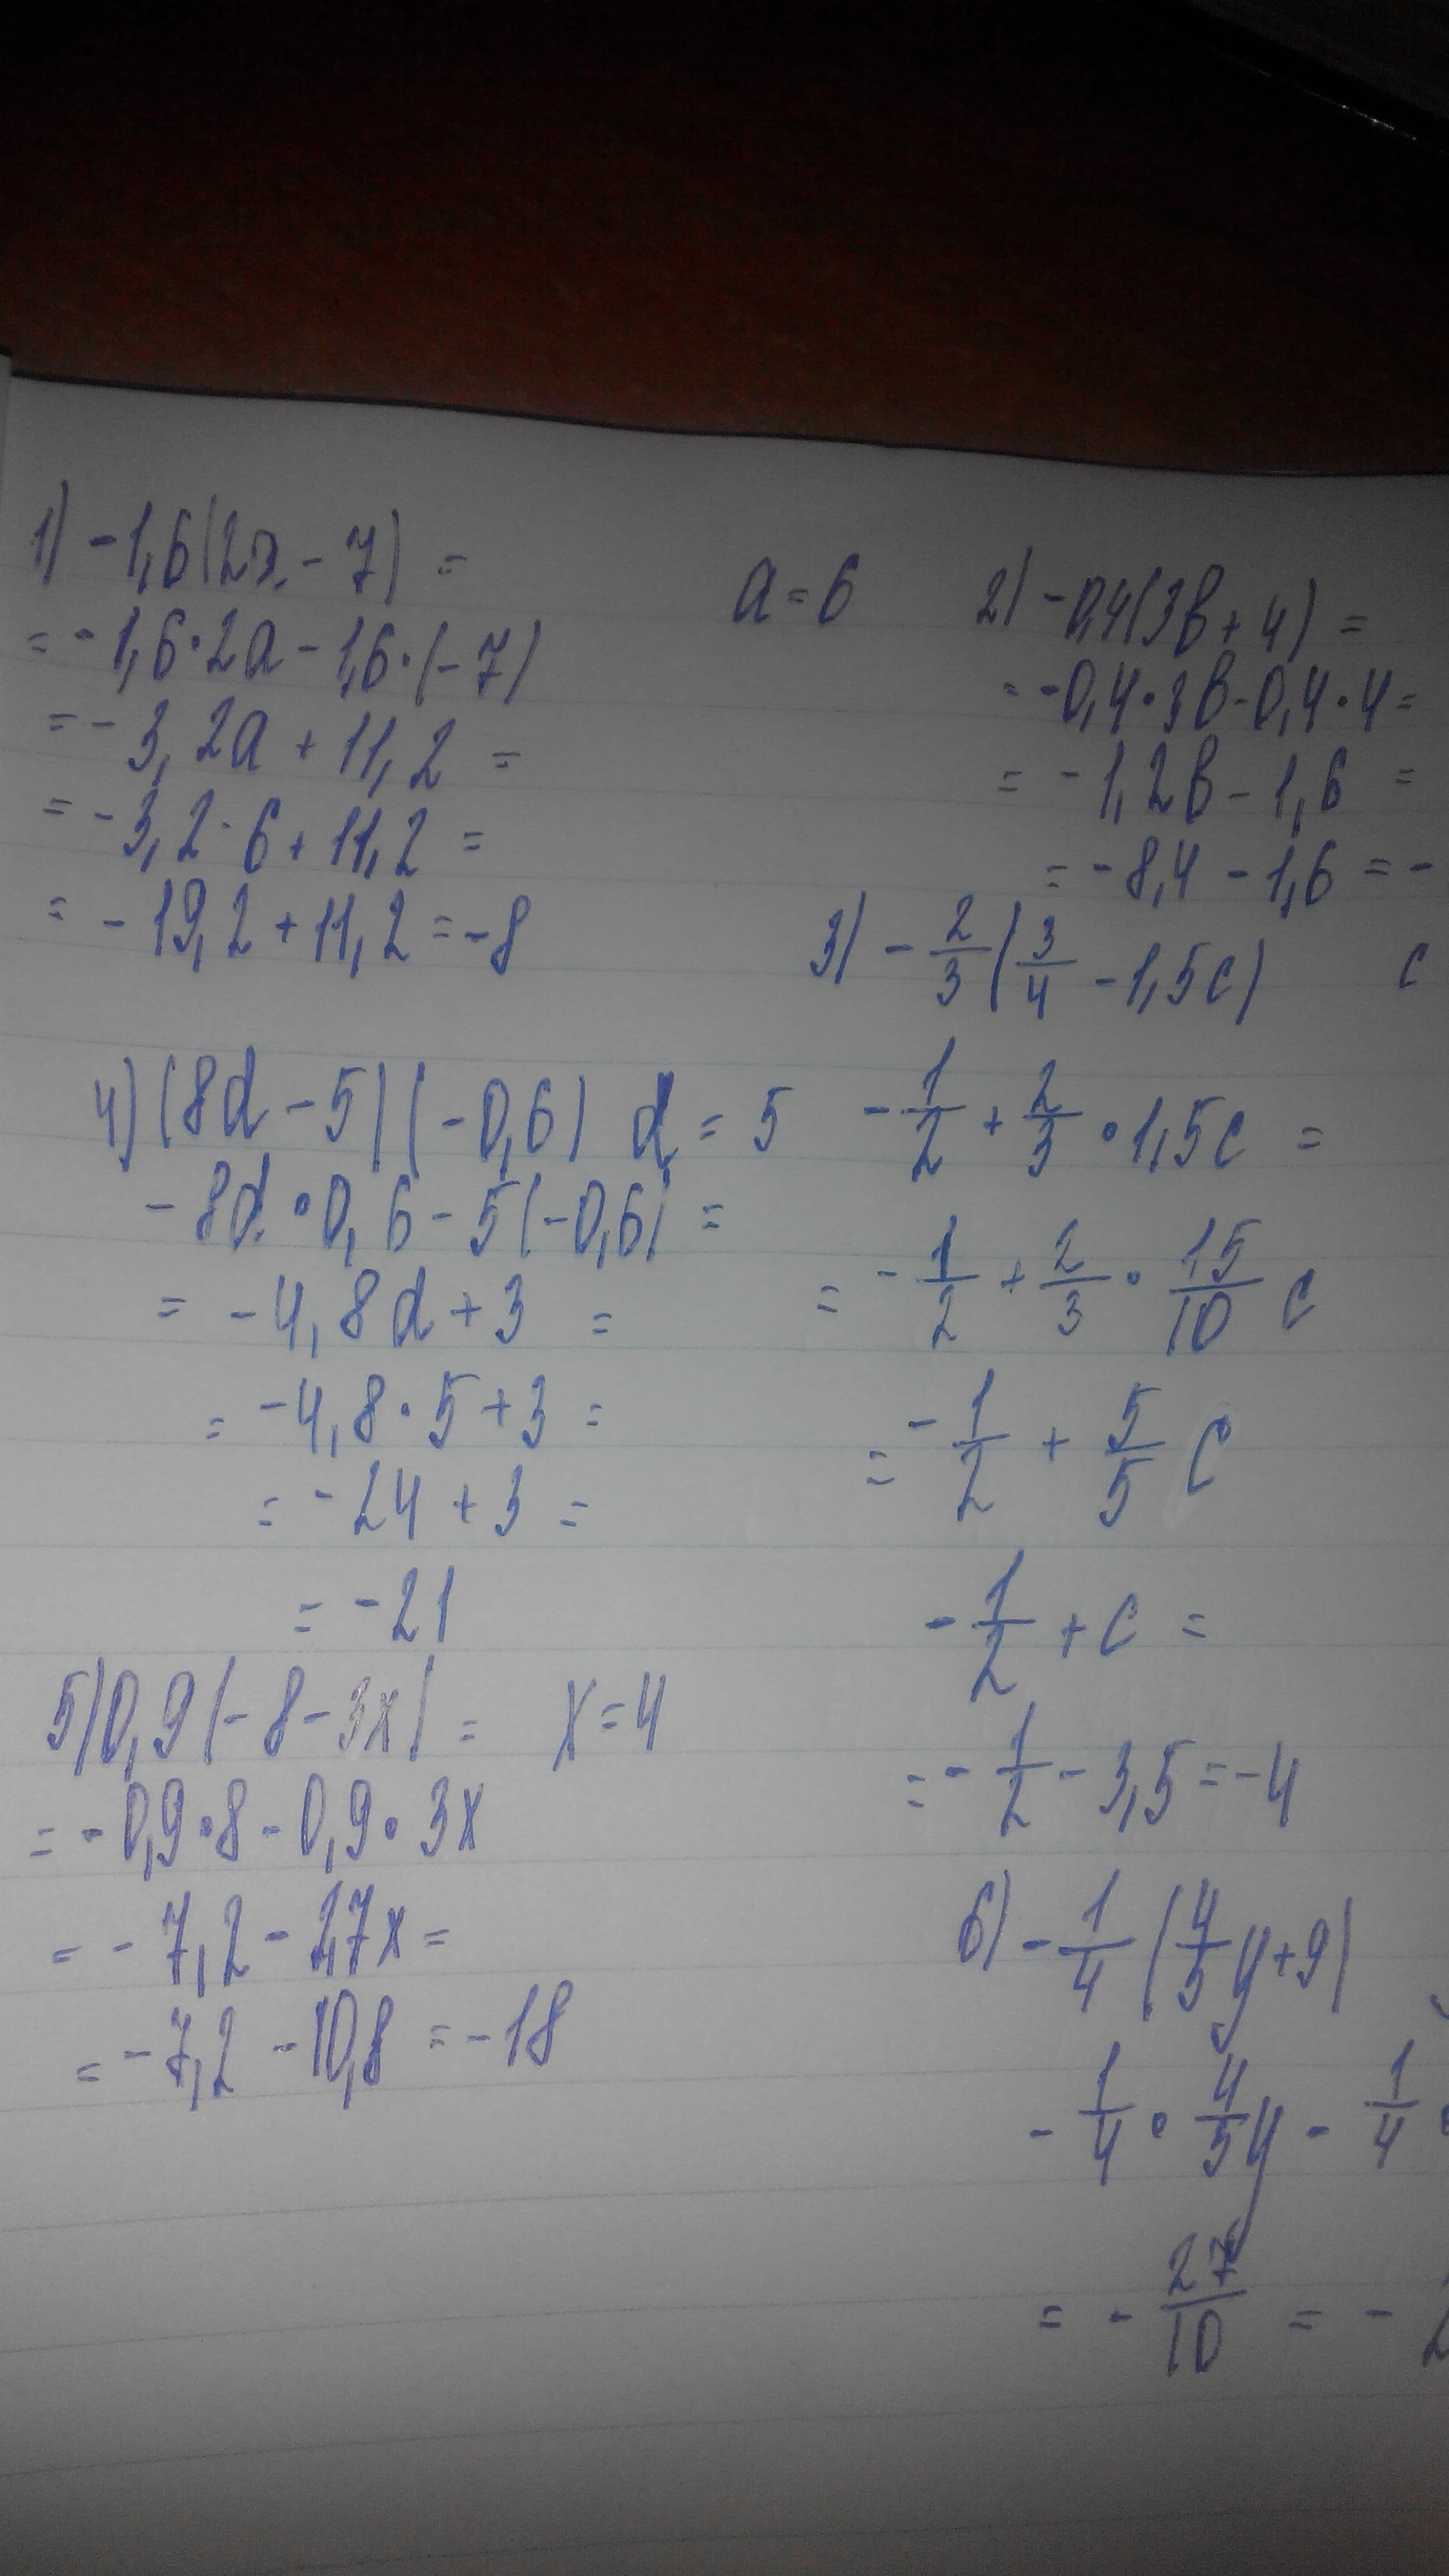 1) -1,6(2a - 7) =
= -1,6·2a - 1,6·(-7)
= -3,2a + 11,2 =
= -3,2·6 + 11,2 =
= -19,2 + 11,2 = -8
a = 6
2) -0,4(3b + 4) =
= -0,4·3b - 0,4·4 =
= -1,2b - 1,6 =
= -8,4 - 1,6 = -
3) -2/3(3/4 - 1,5c) c
-1/2 + 2/3·1,5c =
= -1/2 + 2/3·15/10 c
= -1/2 + 5/5 c
-1/2 + c =
= -1/2 - 3,5 = -4
4) (8d - 5)(-0,6) d = 5
-8d·0,6 - 5(-0,6) =
= -4,8d + 3 =
= -4,8·5 + 3 =
= -24 + 3 =
= -21
5) 0,9(-8 - 3x) = x = 4
= -0,9·8 - 0,9·3x
= -7,2 - 2,7x =
= -7,2 - 10,8 = -18
6) -1/4(4/5y + 9)
-1/4·4/5y - 1/4·
= -27/10 = -2